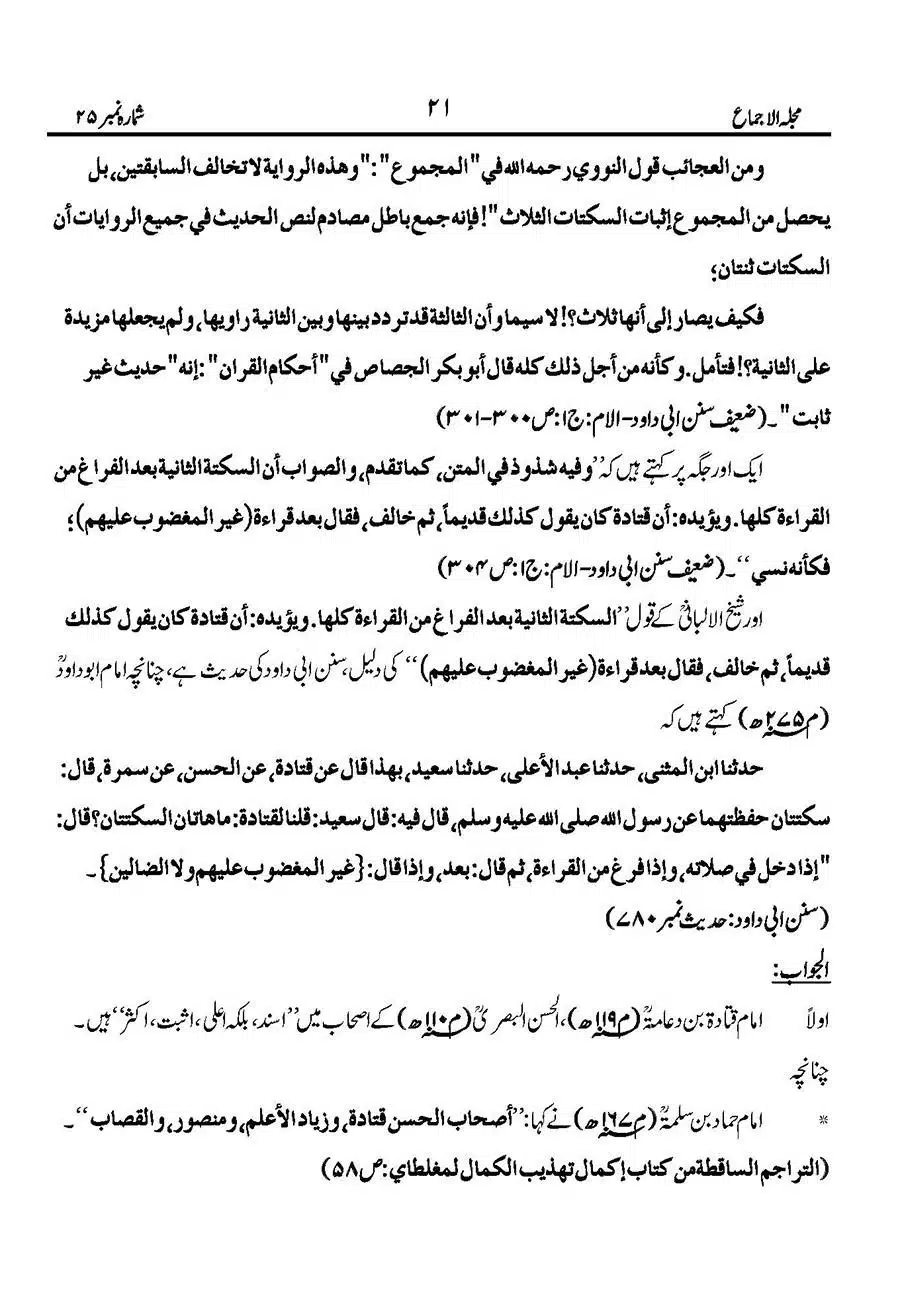 مجلہ الاجماع ۲۱ شمارہ نمبر ۲۵
ومن العجائب قول النووي رحمه الله في "المجموع": "وهذه الرواية لا تخالف السابقتين، بل
يحصل من المجموع إثبات السكتات الثلاث"! فإنه جمع باطل مصادم لنص الحديث في جميع الروايات أن
السكتات ثنتان؛
فكيف يصار إلى أنها ثلاث؟! لا سيما وأن الثالثة قد تردد بينها وبين الثانية راويها، ولم يجعلها مزيدة
على الثانية؟! فتأمل. وكأنه من أجل ذلك كله قال أبو بكر الجصاص في "أحكام القران": إنه "حديث غير
ثابت"۔ (ضعیف سنن ابی داود-الام: ج۱: ص ۳۰۰-۳۰۱)
ایک اور جگہ پر کہتے ہیں کہ ’’وفيه شذوذ في المتن، كما تقدم، والصواب أن السكتة الثانية بعد الفراغ من
القراءة كلها. ويؤيده: أن قتادة كان يقول كذلك قديماً، ثم خالف، فقال بعد قراءة (غير المغضوب عليهم)؛
فكأنه نسي‘‘۔ (ضعیف سنن ابی داود-الام: ج۱: ص ۳۰۴)
اور شیخ الالبانیؒ کے قول ’’السكتة الثانية بعد الفراغ من القراءة كلها. ويؤيده: أن قتادة كان يقول كذلك
قديماً، ثم خالف، فقال بعد قراءة (غير المغضوب عليهم)‘‘ کی دلیل، سنن ابی داود کی حدیث ہے، چنانچہ امام ابوداودؒ
(م۲۷۵ھ) کہتے ہیں کہ
حدثنا ابن المثنى، حدثنا عبد الأعلى، حدثنا سعيد، بهذا قال عن قتادة، عن الحسن، عن سمرة، قال:
سكتتان حفظتهما عن رسول الله صلى الله عليه وسلم، قال فيه: قال سعيد: قلنا لقتادة: ما هاتان السكتتان؟ قال:
"إذا دخل في صلاته، وإذا فرغ من القراءة، ثم قال: بعد، وإذا قال: {غير المغضوب عليهم ولا الضالين}۔
(سنن ابی داود: حدیث نمبر ۷۸۰)
الجواب:
اولاً امام قتادۃ بن دعامۃؒ (م۱۱۹ھ)، الحسن البصریؒ (م۱۱۰ھ) کے اصحاب میں ’’اسند، بلکہ اعلی، اثبت، اکثر‘‘ ہیں۔
چنانچہ
* امام حماد بن سلمۃؒ (م۱۶۷ھ) نے کہا: ’’أصحاب الحسن قتادة، وزياد الأعلم، ومنصور، والقصاب‘‘۔
(التراجم الساقطة من كتاب إكمال تهذيب الكمال لمغلطاي: ص ۵۸)